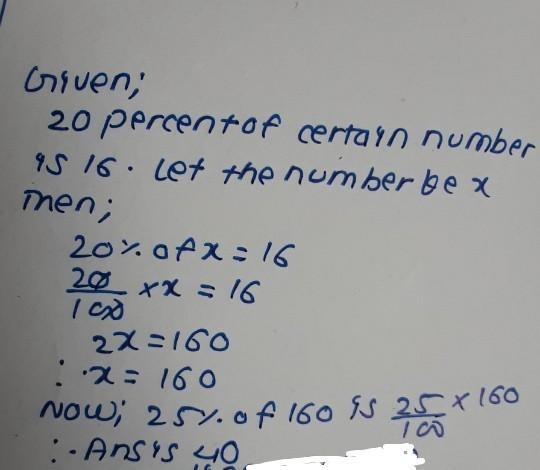 Given;
20 percent of certain number
is 16. Let the number be x
Then;
20% of x = 16
20/100 × x = 16
2x = 160
∴ x = 160
Now; 25% of 160 is 25/100 × 160
∴ Ans is 40